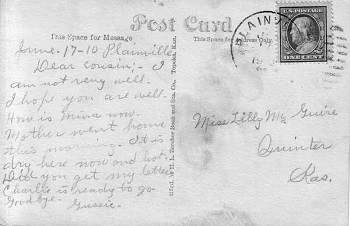 Post Card
This Space for Message
This Space for Address Only
June-17-10 Plainville
Dear cousin;- I
am not very well.
I hope you are well.
How is mina now.
Mother went home
this morning. It is
dry here now and hot.
Did you get my letter
Charlie is ready to go
Goodbye.
Gussie.
H. L. Book and Sta. Co., Topeka, Kan.
PLAINV
ONE CENT
Miss Lilly Mc Guire
Quinter
Kas.